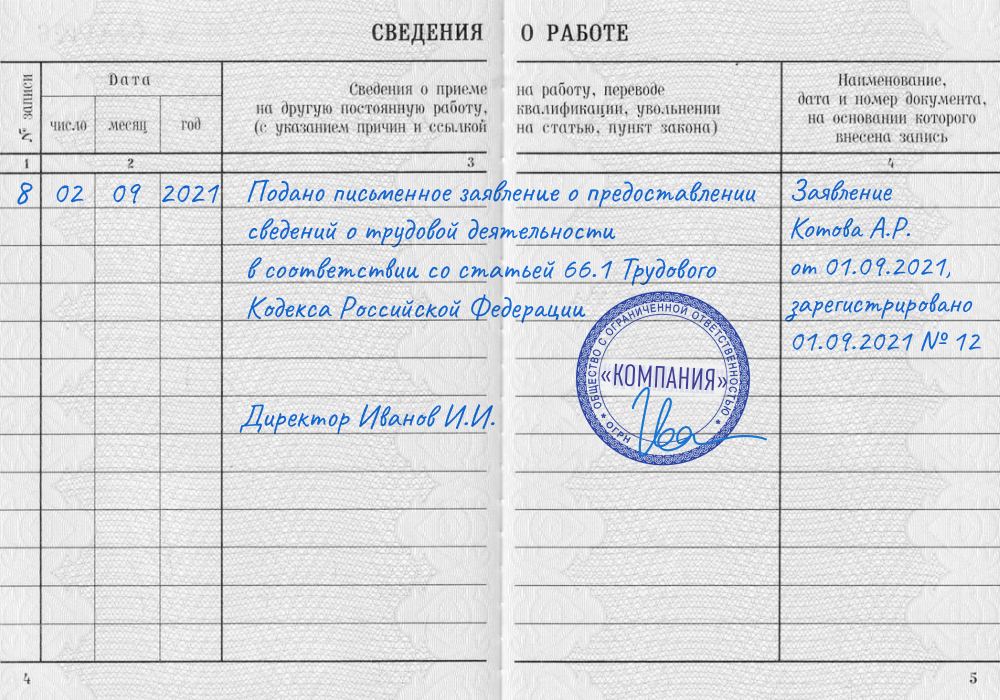 СВЕДЕНИЯ О РАБОТЕ
№ записи
Дата
число
месяц
год
Сведения о приеме на работу, переводе
на другую постоянную работу, квалификации, увольнении
(с указанием причин и ссылкой на статью, пункт закона)
Наименование,
дата и номер документа,
на основании которого
внесена запись
1 2 3 4
8 02 09 2021 Подано письменное заявление о предоставлении
сведений о трудовой деятельности
в соответствии со статьей 66.1 Трудового
Кодекса Российской Федерации
Заявление
Котова А.Р.
от 01.09.2021,
зарегистрировано
01.09.2021 № 12
Директор Иванов И.И.
ОБЩЕСТВО С ОГРАНИЧЕННОЙ ОТВЕТСТВЕННОСТЬЮ
«КОМПАНИЯ»
ОГРН
Ива
4
5